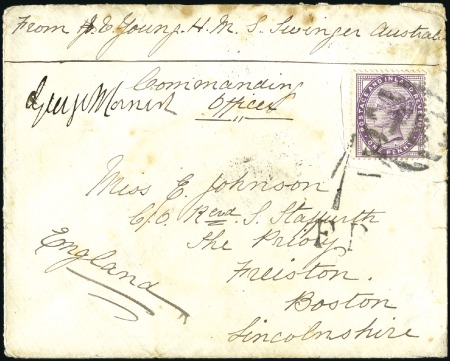 From J. E. Young. H. M. S. Swinger Austral
Commanding
Officer
POSTAGE AND INLAND REVENUE
ONE PENNY
Miss E. Johnson
C/O Revd S. Staffurth
The Priory
Freiston.
Boston
Lincolnshire
England